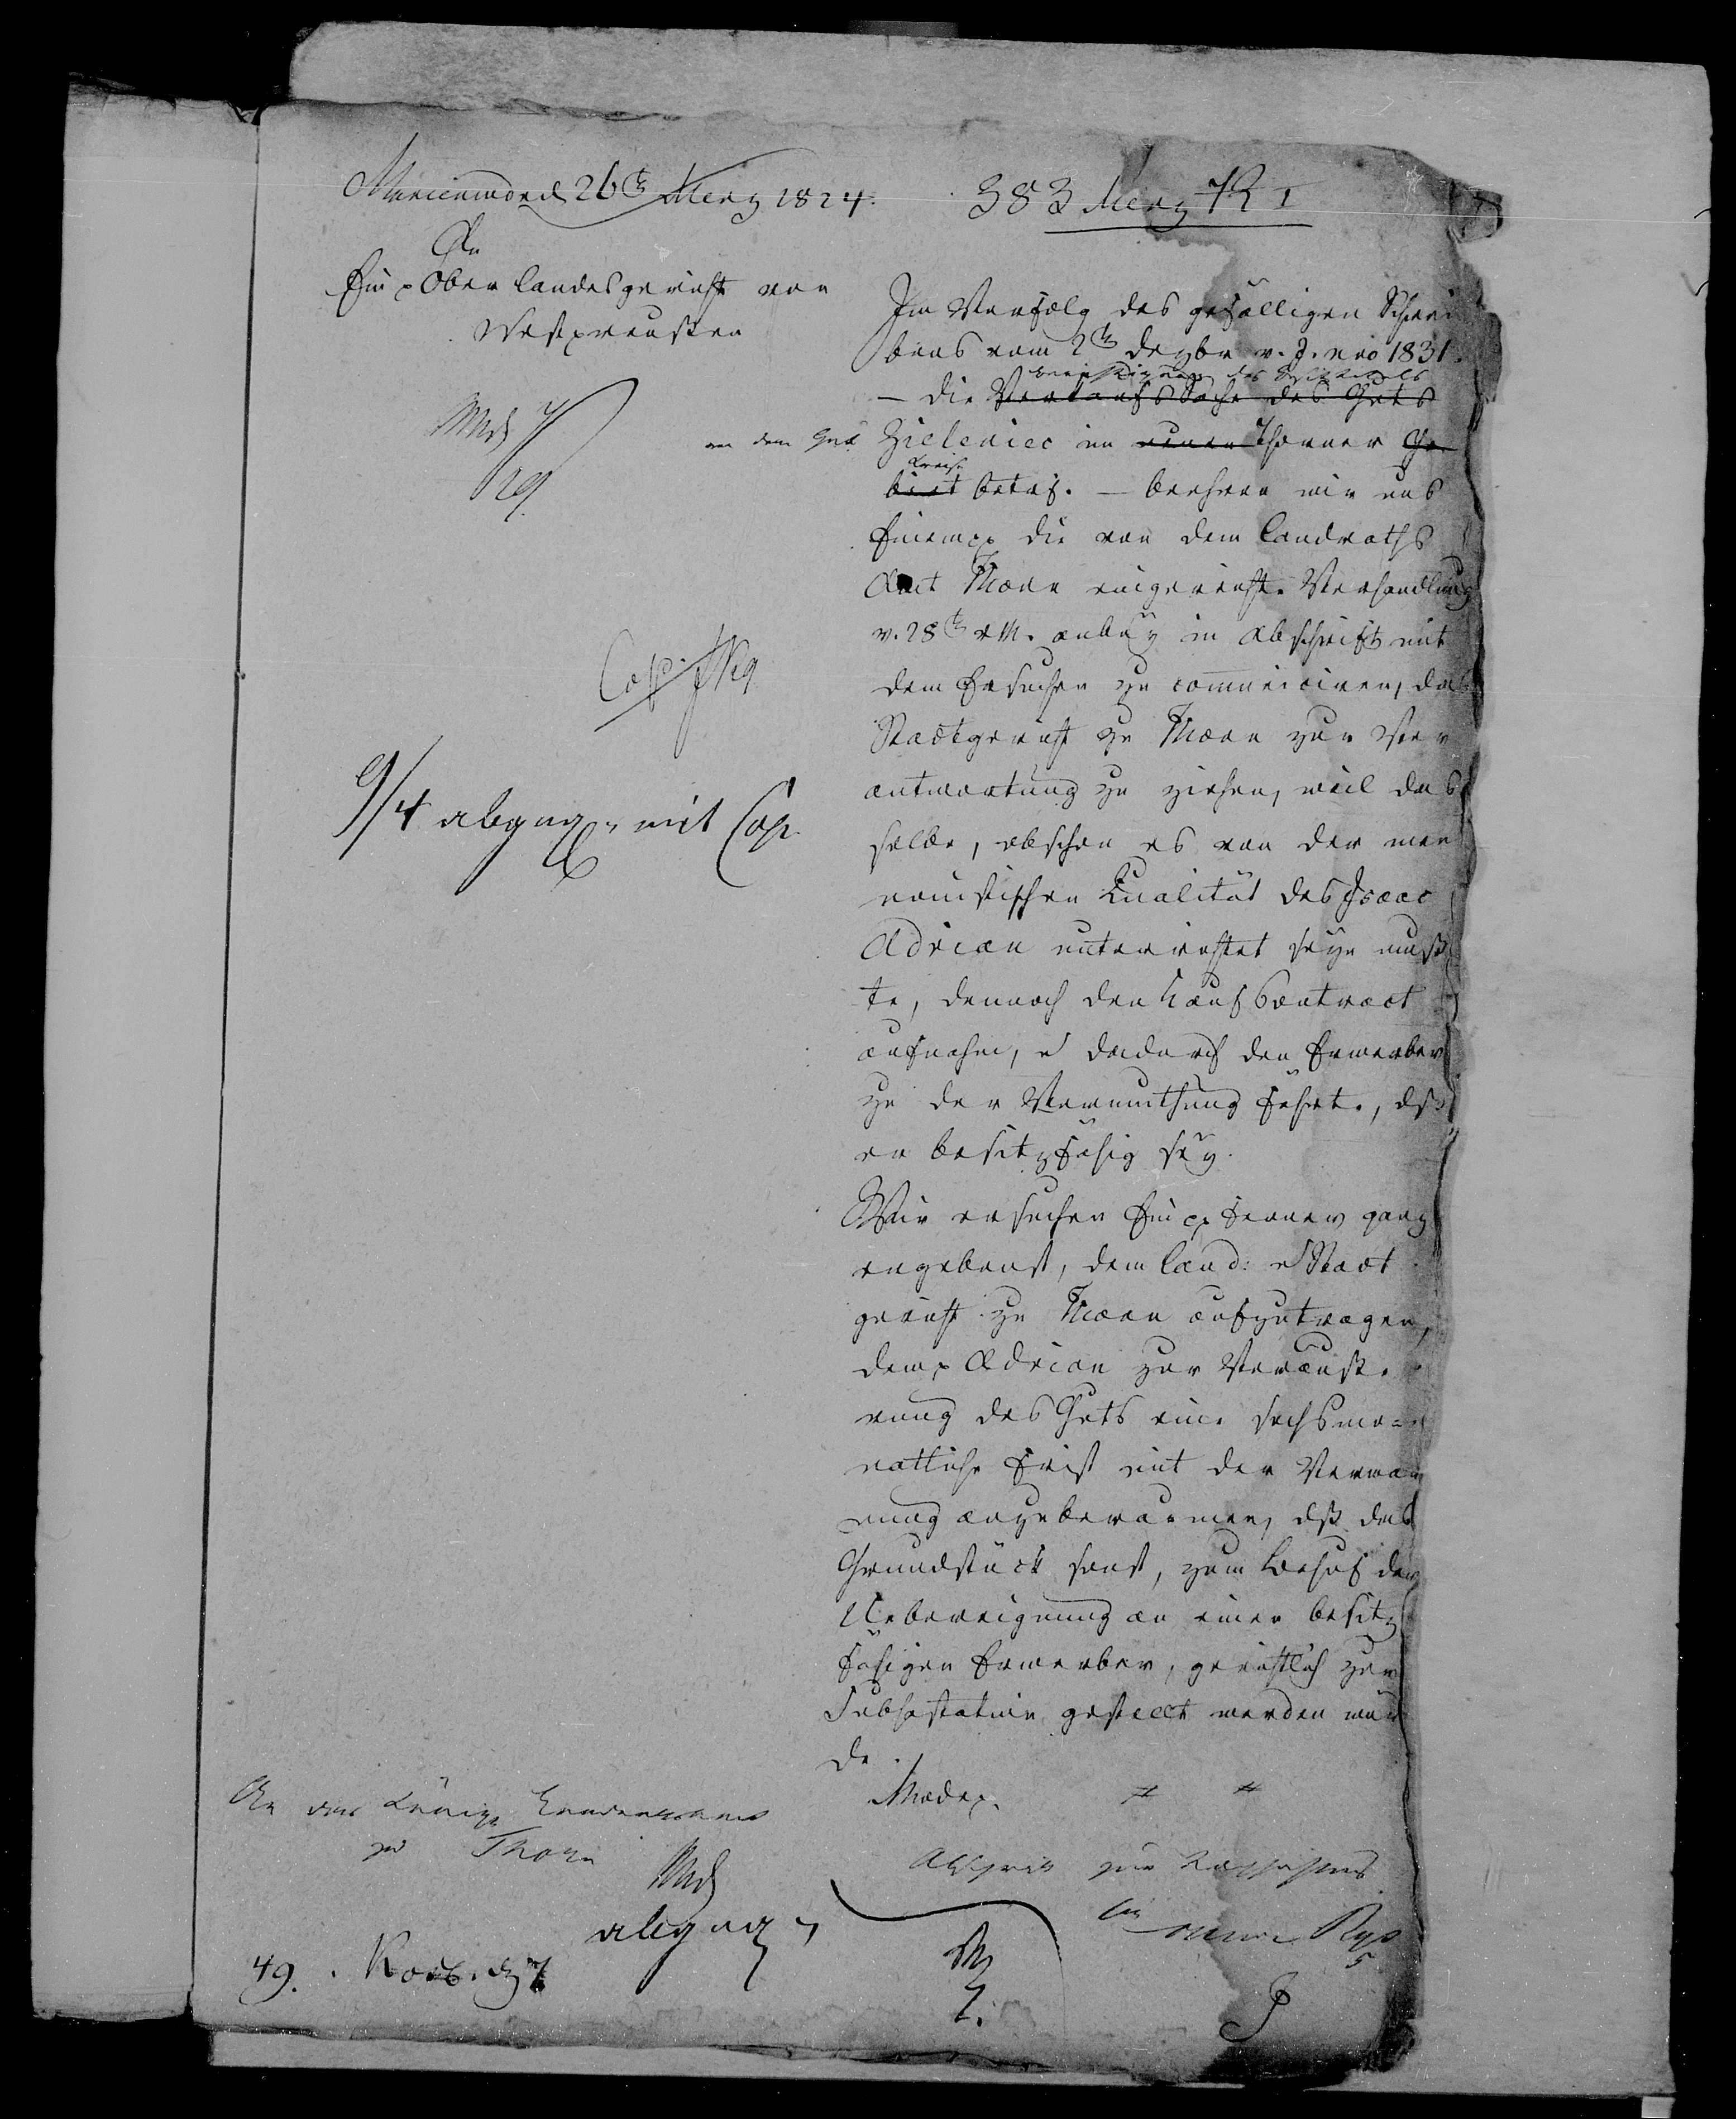 Marienwerder 26t Merz 1824.
383 Merz
An
Ein p Ober Landesgericht von
Westpreussen
Im Verfolg des gefälligen Schrei
bens vom 2t Dezbr v. J. nro 1831.
Berichtigung des Besitztitels
– die Verkaufs Sache des Guts
von dem Gute Zieleniec im Thorner Ge
Kreise
biet betref. – beehren wir uns
Einem pp die von dem Landraths
Amt Thorn eingereichte Verhandlung
v. 28t v M. anbey in Abschrift mit
dem Ersuchen zu communiciren, das
Stadtgericht zu Thorn zur Ver
antwortung zu ziehen, weil das
selbe, obschon es von der men
nonistischen Qualität des Isaac
Adrian unterrichtet seyn muß
te, dennoch den Kauf Contract
aufnahm, u dadurch den Erwerber
zu der Vermuthung führte, dß
er besitzfähig sey.
Wir ersuchen Ein pp ferner ganz
ergebenst, dem Land: u Stadt
gericht zu Thorn aufzutragen,
dem p Adrian zur Veräuße
rung des Guts eine sechsmo=
natliche Frist mit der Verwar
nung anzuberaumen, dß das
Grundstück sonst, zum Behuf der
Uebereignung an einen besitz
fähigen Erwerber, gerichtlich zur
Subhastation gestellt werden wür
de.
Cop
9/4 abgeg. mit Cop.
An das Königl Landrathsamt
zu Thorn
Abschrift zur Nachricht
abgeg
49.